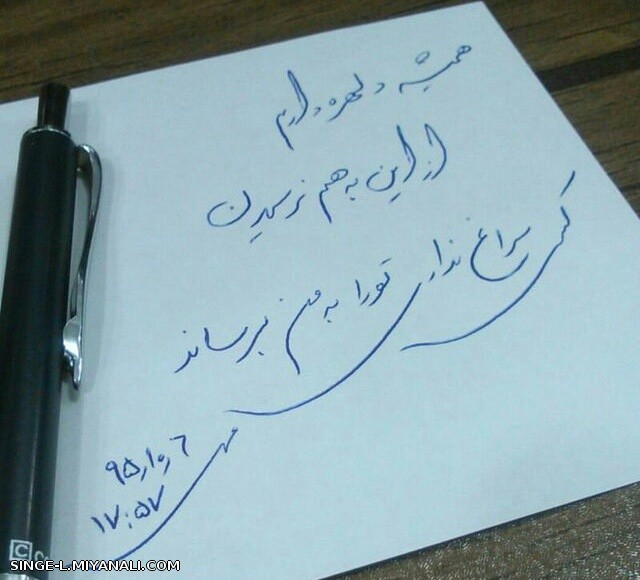 همیشه دلهره دارم
از این به هم نرسیدن
کسی سراغ نداری تو را به من برساند
مهر
۹۵٫۱۰٫۶
۱۷:۵۷
SINGE-L.MIYANALI.COM